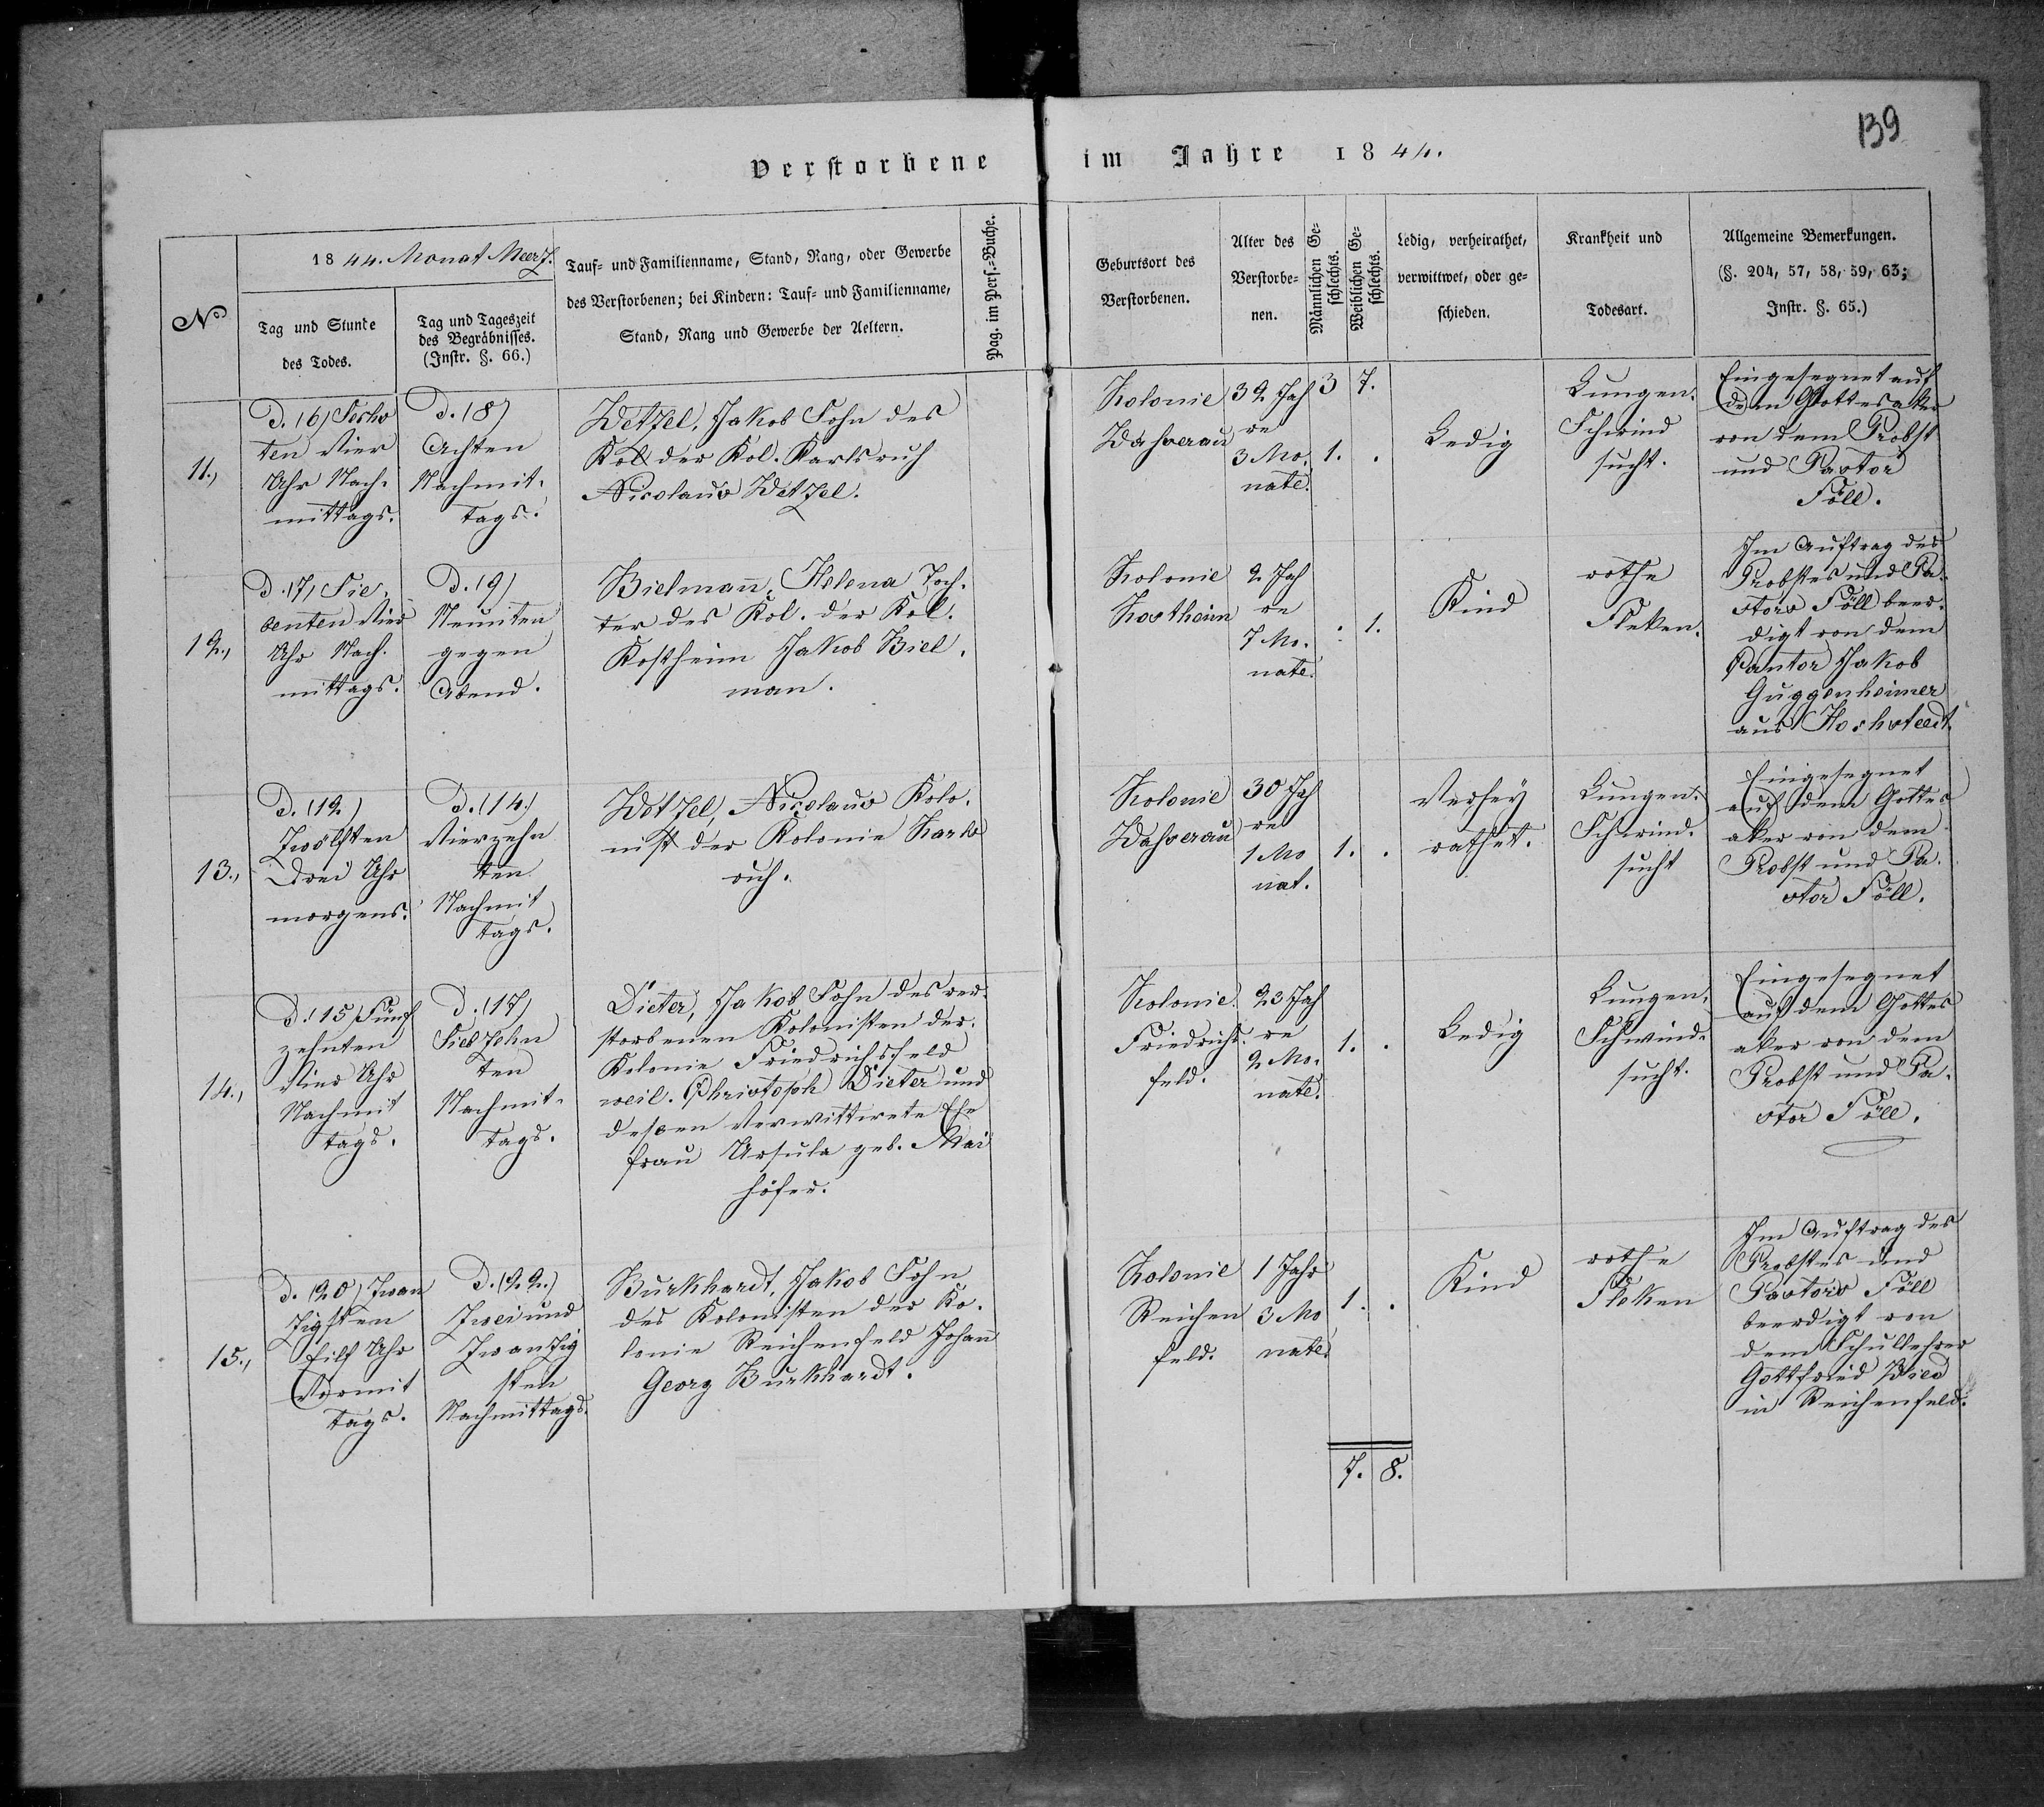 139
Verstorbene im Jahre 1844.
1844. Monat Meerz.
No
Tag und Stunde
des Todes.
Tag und Tageszeit
des Begräbnisses.
(Instr. §. 66.)
Tauf- und Familienname, Stand, Rang, oder Gewerbe
des Verstorbenen; bei Kindern: Tauf- und Familienname,
Stand, Rang und Gewerbe der Aeltern.
Pag. im Pers.-Buche.
Geburtsort des
Verstorbenen.
Alter des
Verstorbe-
nen.
Männlichen Ge-
schlechts.
Weiblichen Ge-
schlechts.
Ledig, verheirathet,
verwittwet, oder ge-
schieden.
Krankheit und
Todesart.
Allgemeine Bemerkungen.
(§. 204, 57, 58, 59, 63;
Instr. §. 65.)
11.,
D. (6) Sechs
ten Vier
Uhr Nach-
mittags.
D. (8)
Achten
Nachmit-
tags.
Wetzel, Jakob Sohn des
Kol der Kol. Karlsruh
Nicolaus Wetzel.
Kolonie
Waßerau
32 Jah
re
3 Mo.
nate.
3 7.
1. .
Ledig
Lungen.
Schwind
sucht.
Eingesegnet auf
dem Gottesaker
von dem Probst
und Pastor
Föll.
12.,
D. (7) Sie-
benten Vier
Uhr Nach-
mittags.
D. (9)
Neunten
gegen
Abend.
Bielmann, Helena Toch-
ter des Kol. der Kol.
Kostheim Jakob Biel.
man.
Kolonie
Kostheim
2 Jah
re
7 Mo.
nate.
. 1.
Kind
rothe
Fleken.
Im Auftrag des
Probstes und Pa-
stors Föll beer-
digt von dem
Cantor Jakob
Guggenheimer
aus Hochstedt.
13.,
D. (12)
Zwölften
Drei Uhr
morgens.
D. (14.)
Vierzehn
ten
Nachmit
tags.
Wetzel, Nicolaus Kolo-
nist der Kolonie Karls
ruh.
Kolonie
Waßerau
30 Jah
re
1 Mo
nat.
1. .
Verhey
rathet.
Lungen.
Schwind.
sucht
Eingesegnet
auf dem Gottes
aker von dem
Probst und Pa-
stor Föll.
14.,
D. (15) Fünf
zehnten
Vier Uhr
Nachmit
tags.
D. (17)
Siebzehn
ten
Nachmit-
tags.
Dieter, Jakob Sohn des ver-
storbenen Kolonisten der
Kolonie Friedrichsfeld
weil. Christoph Dieter und
deßen Verwittwete Ehe
frau Ursula geb. Mai
höfer.
Kolonie
Friedrichs-
feld.
23 Jah
re
2 Mo.
nate.
1. .
Ledig
Lungen.
Schwind.
sucht.
Eingesegnet
auf dem Gottes
aker von dem
Probst und Pa-
stor Föll.
15.,
D. (20) Zwan
zigsten
Eilf Uhr
Vormit
tags.
D. (22.)
Zwei und
Zwanzig
sten
Nachmittags.
Burkhardt, Jakob Sohn
des Kolonisten der Ko-
lonie Reichenfeld Johann
Georg Burkhardt.
Kolonie
Reichen
feld.
1 Jahr
3 Mo
nate.
1. .
Kind
rothe
Fleken
Im Auftrag des
Probstes und
Pastors Föll
beerdigt von
dem Schullehrer
Gottfried
in Reichenfeld.
7. 8.